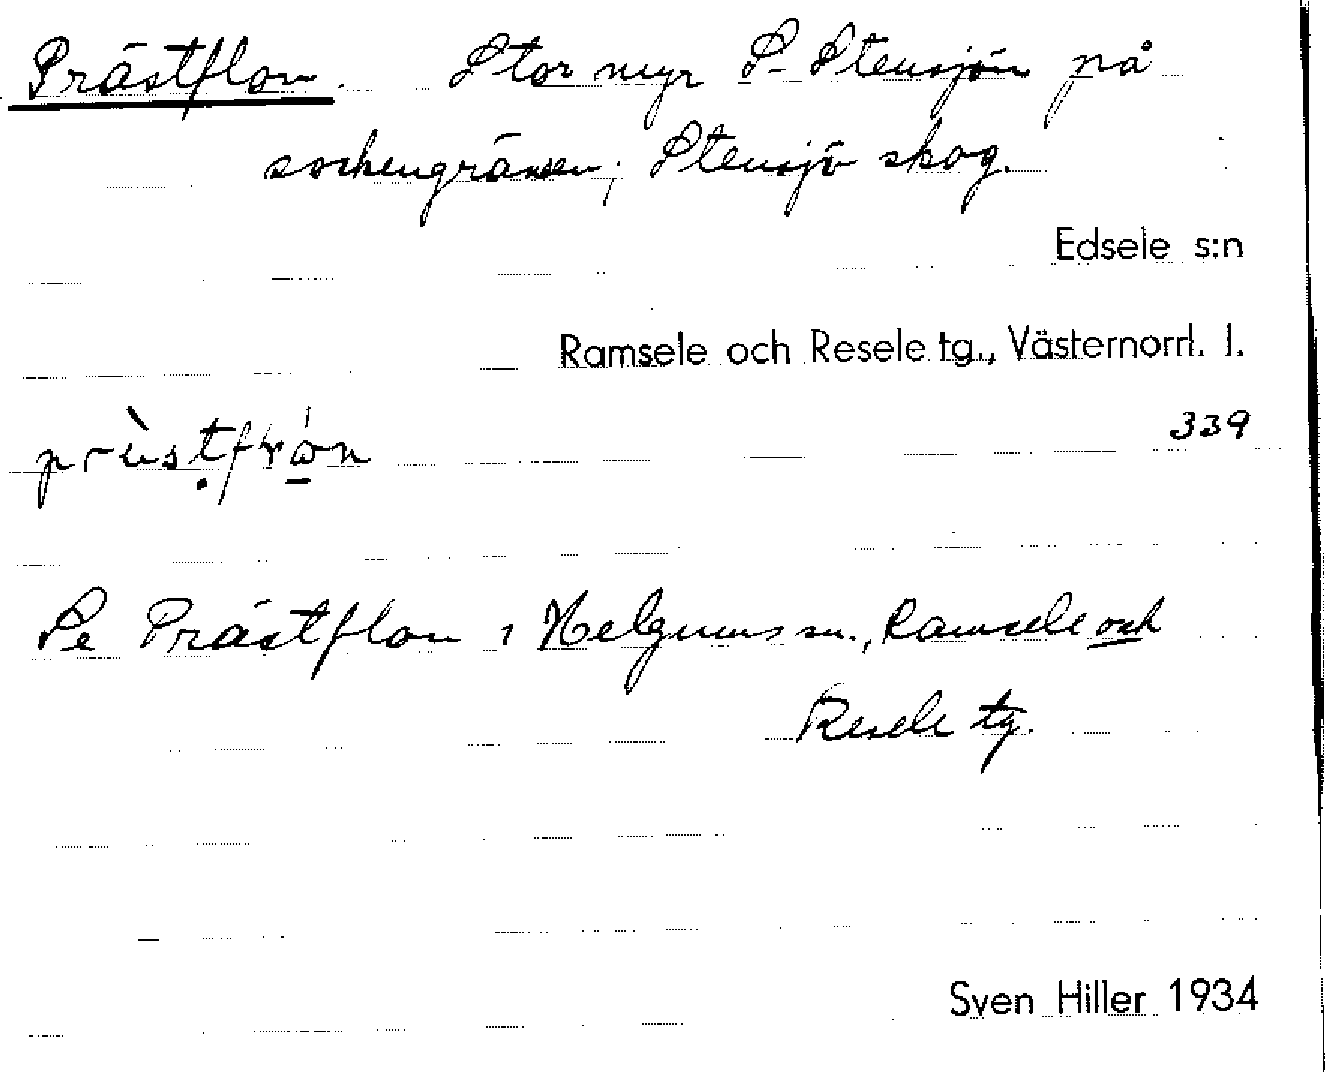 Prästflon. Stor myr S. Stensjön på
sockengränsen; Stensjö skog.
Edsele s:n
Ramsele och Resele tg., Västernorrl. l.
339
Se Prästflon i Helgums sn., Ramsele och
Resele tg.
Sven Hiller 1934